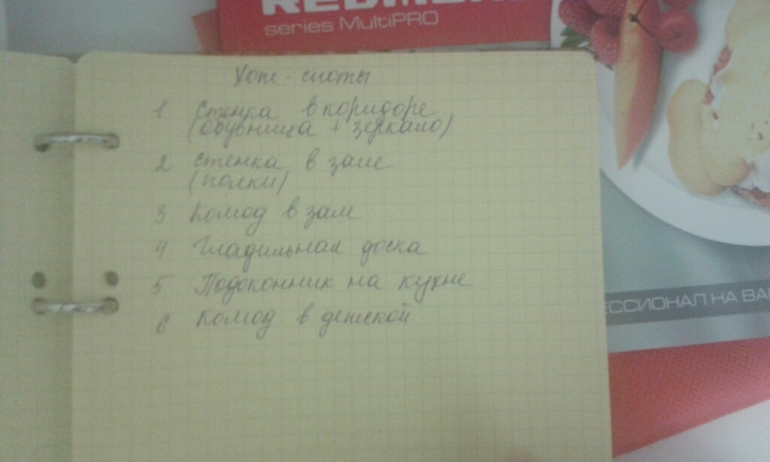 REDMOND
series MultiPRO
Хот-споты
1 Стенка в коридоре
(обувница + зеркало)
2 Стенка в зале
(полки)
3 Комод в зал
4 Гладильная доска
5 Подоконник на кухне
6 Комод в детской
ЕССИОНАЛ НА ВА